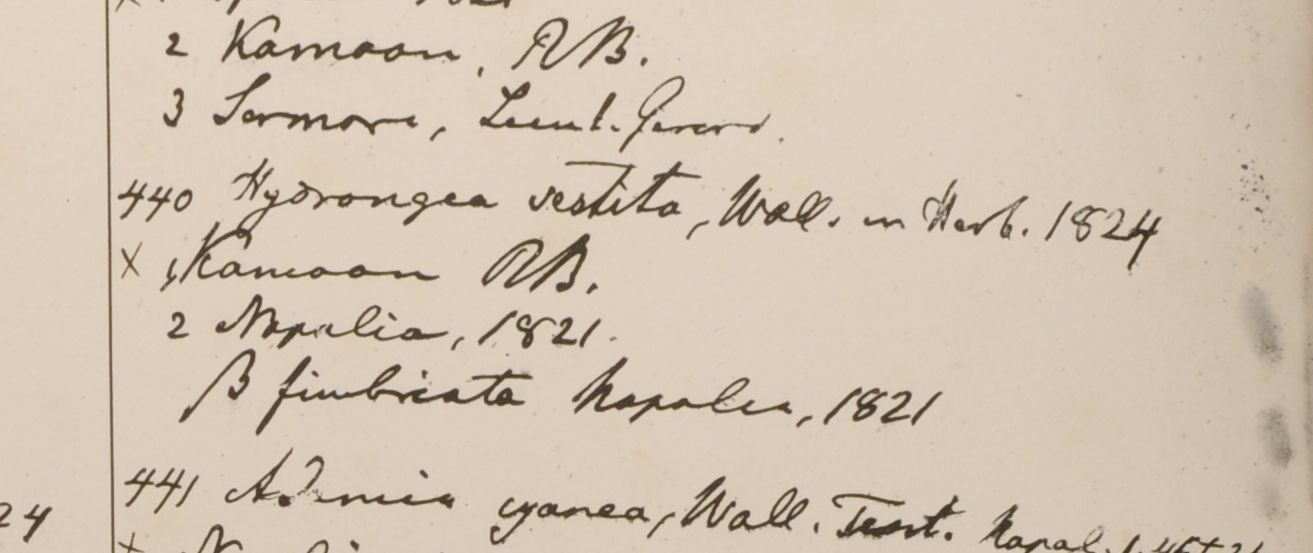 1821
2 Kamaon, RB.
3 Sermore, Lieut. Gerard.
440 Hydrangea vestita, Wall. in Herb. 1824
x 1 Kamaon RB.
2 Napalia, 1821.
β fimbriata Napalia, 1821
24 441 Adamia cyanea, Wall. Tent. Napal.
x